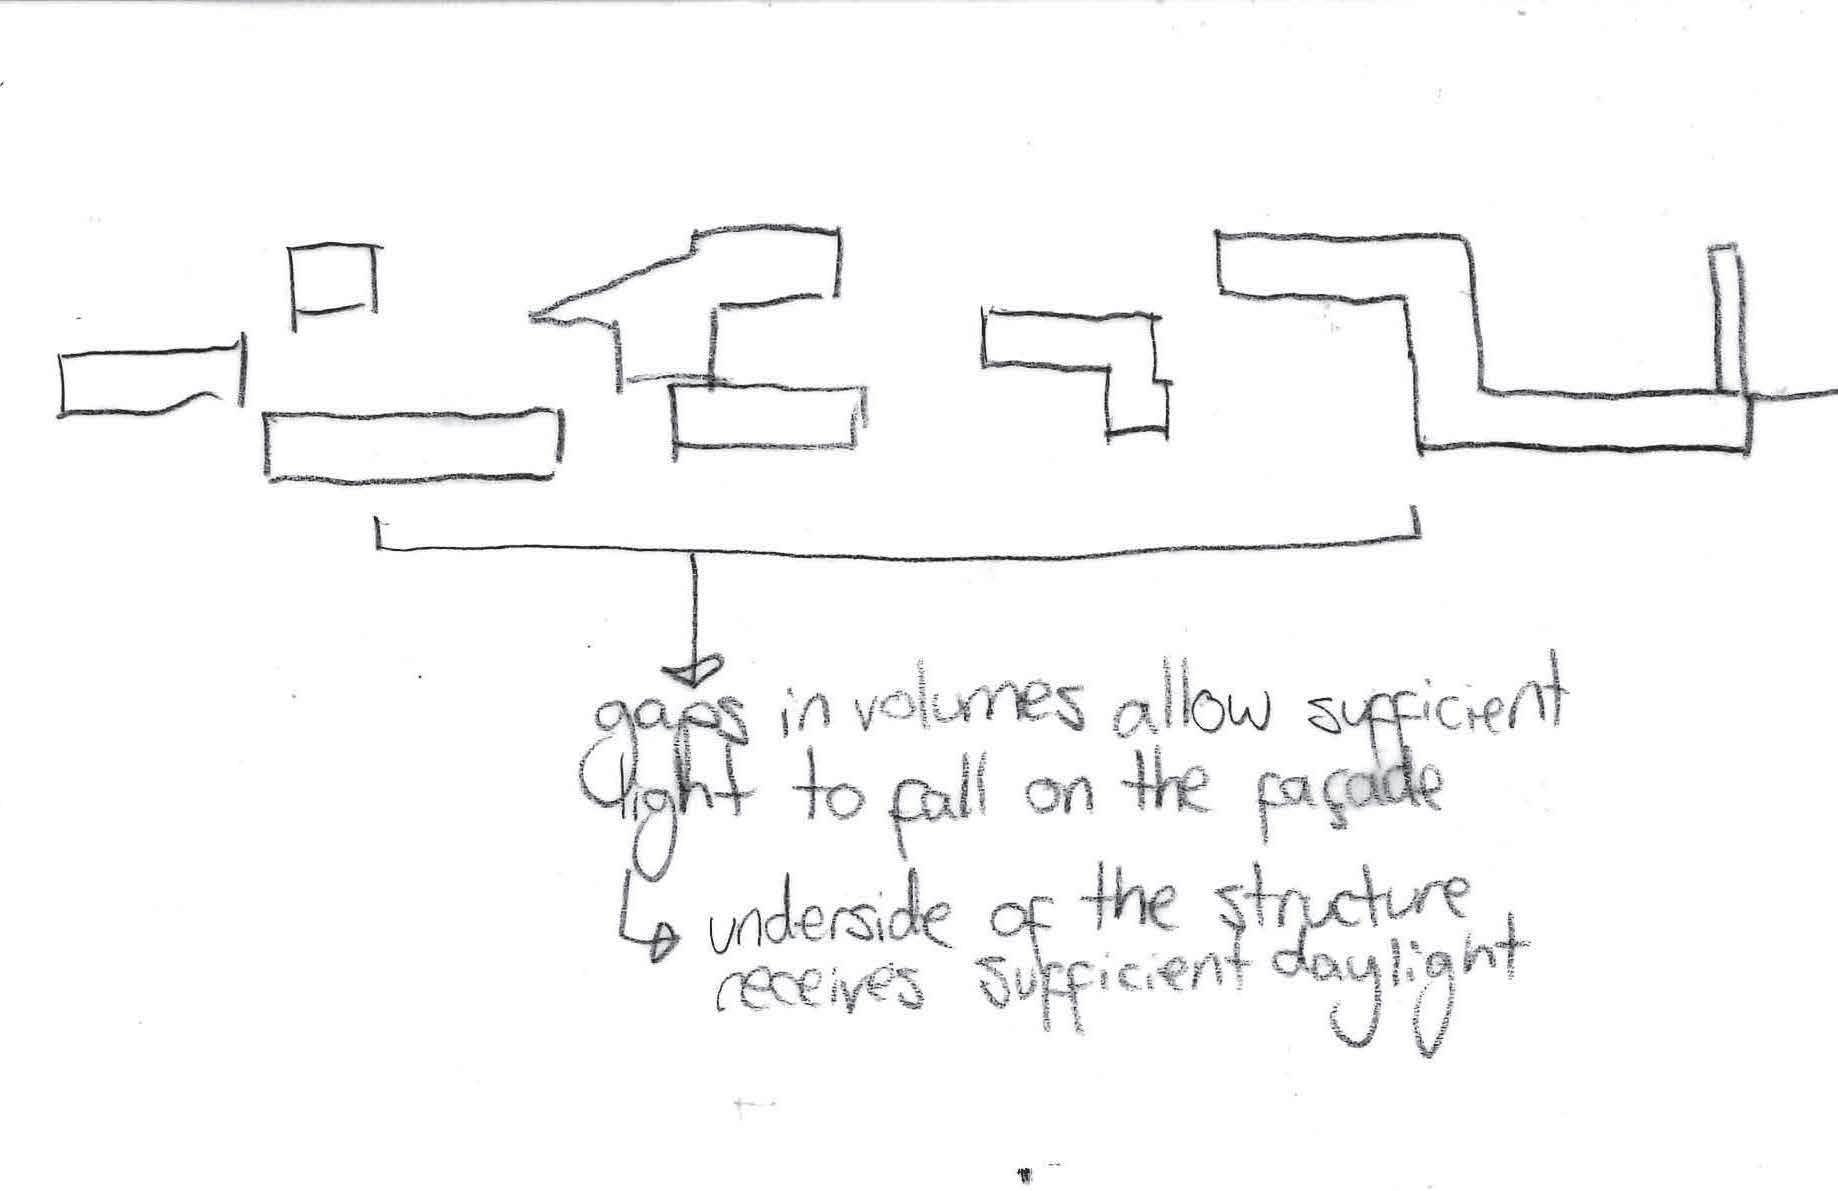 gaps in volumes allow sufficient
light to fall on the façade
underside of the structure
receives sufficient daylight